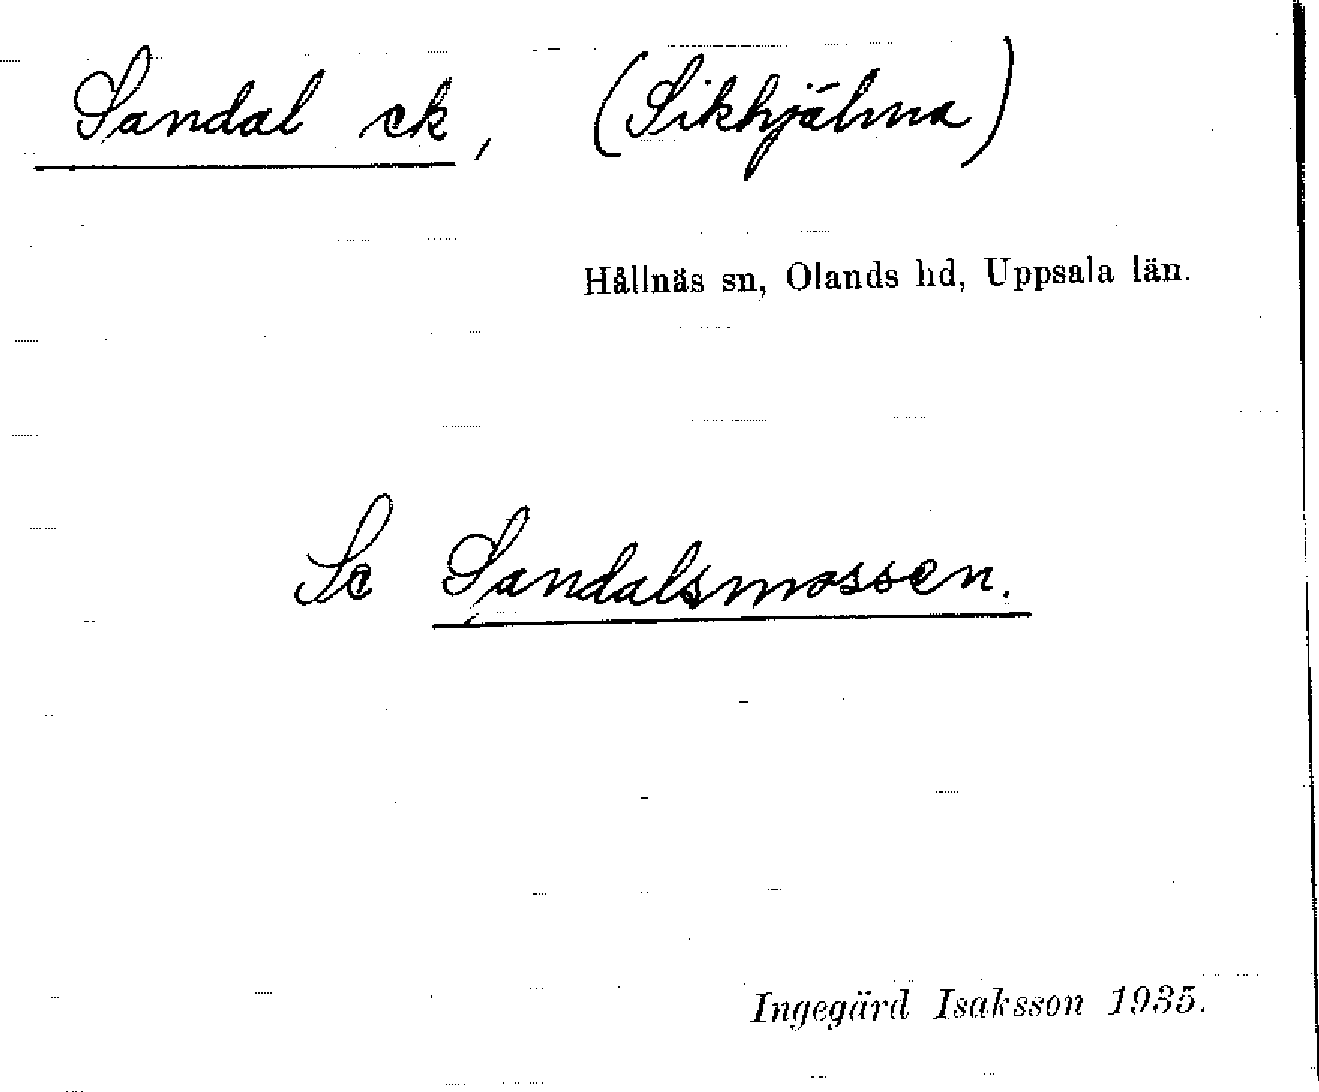 Sandal ek, (Sikhjälma)
Hållnäs sn, Olands hd, Uppsala län.
Se Sandalsmossen.
Ingegärd Isaksson 1935.